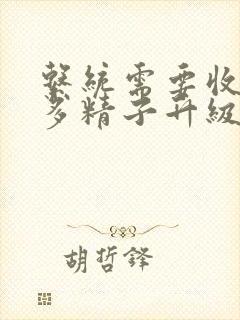 繫統需要收
多精子升級
胡哲鋒